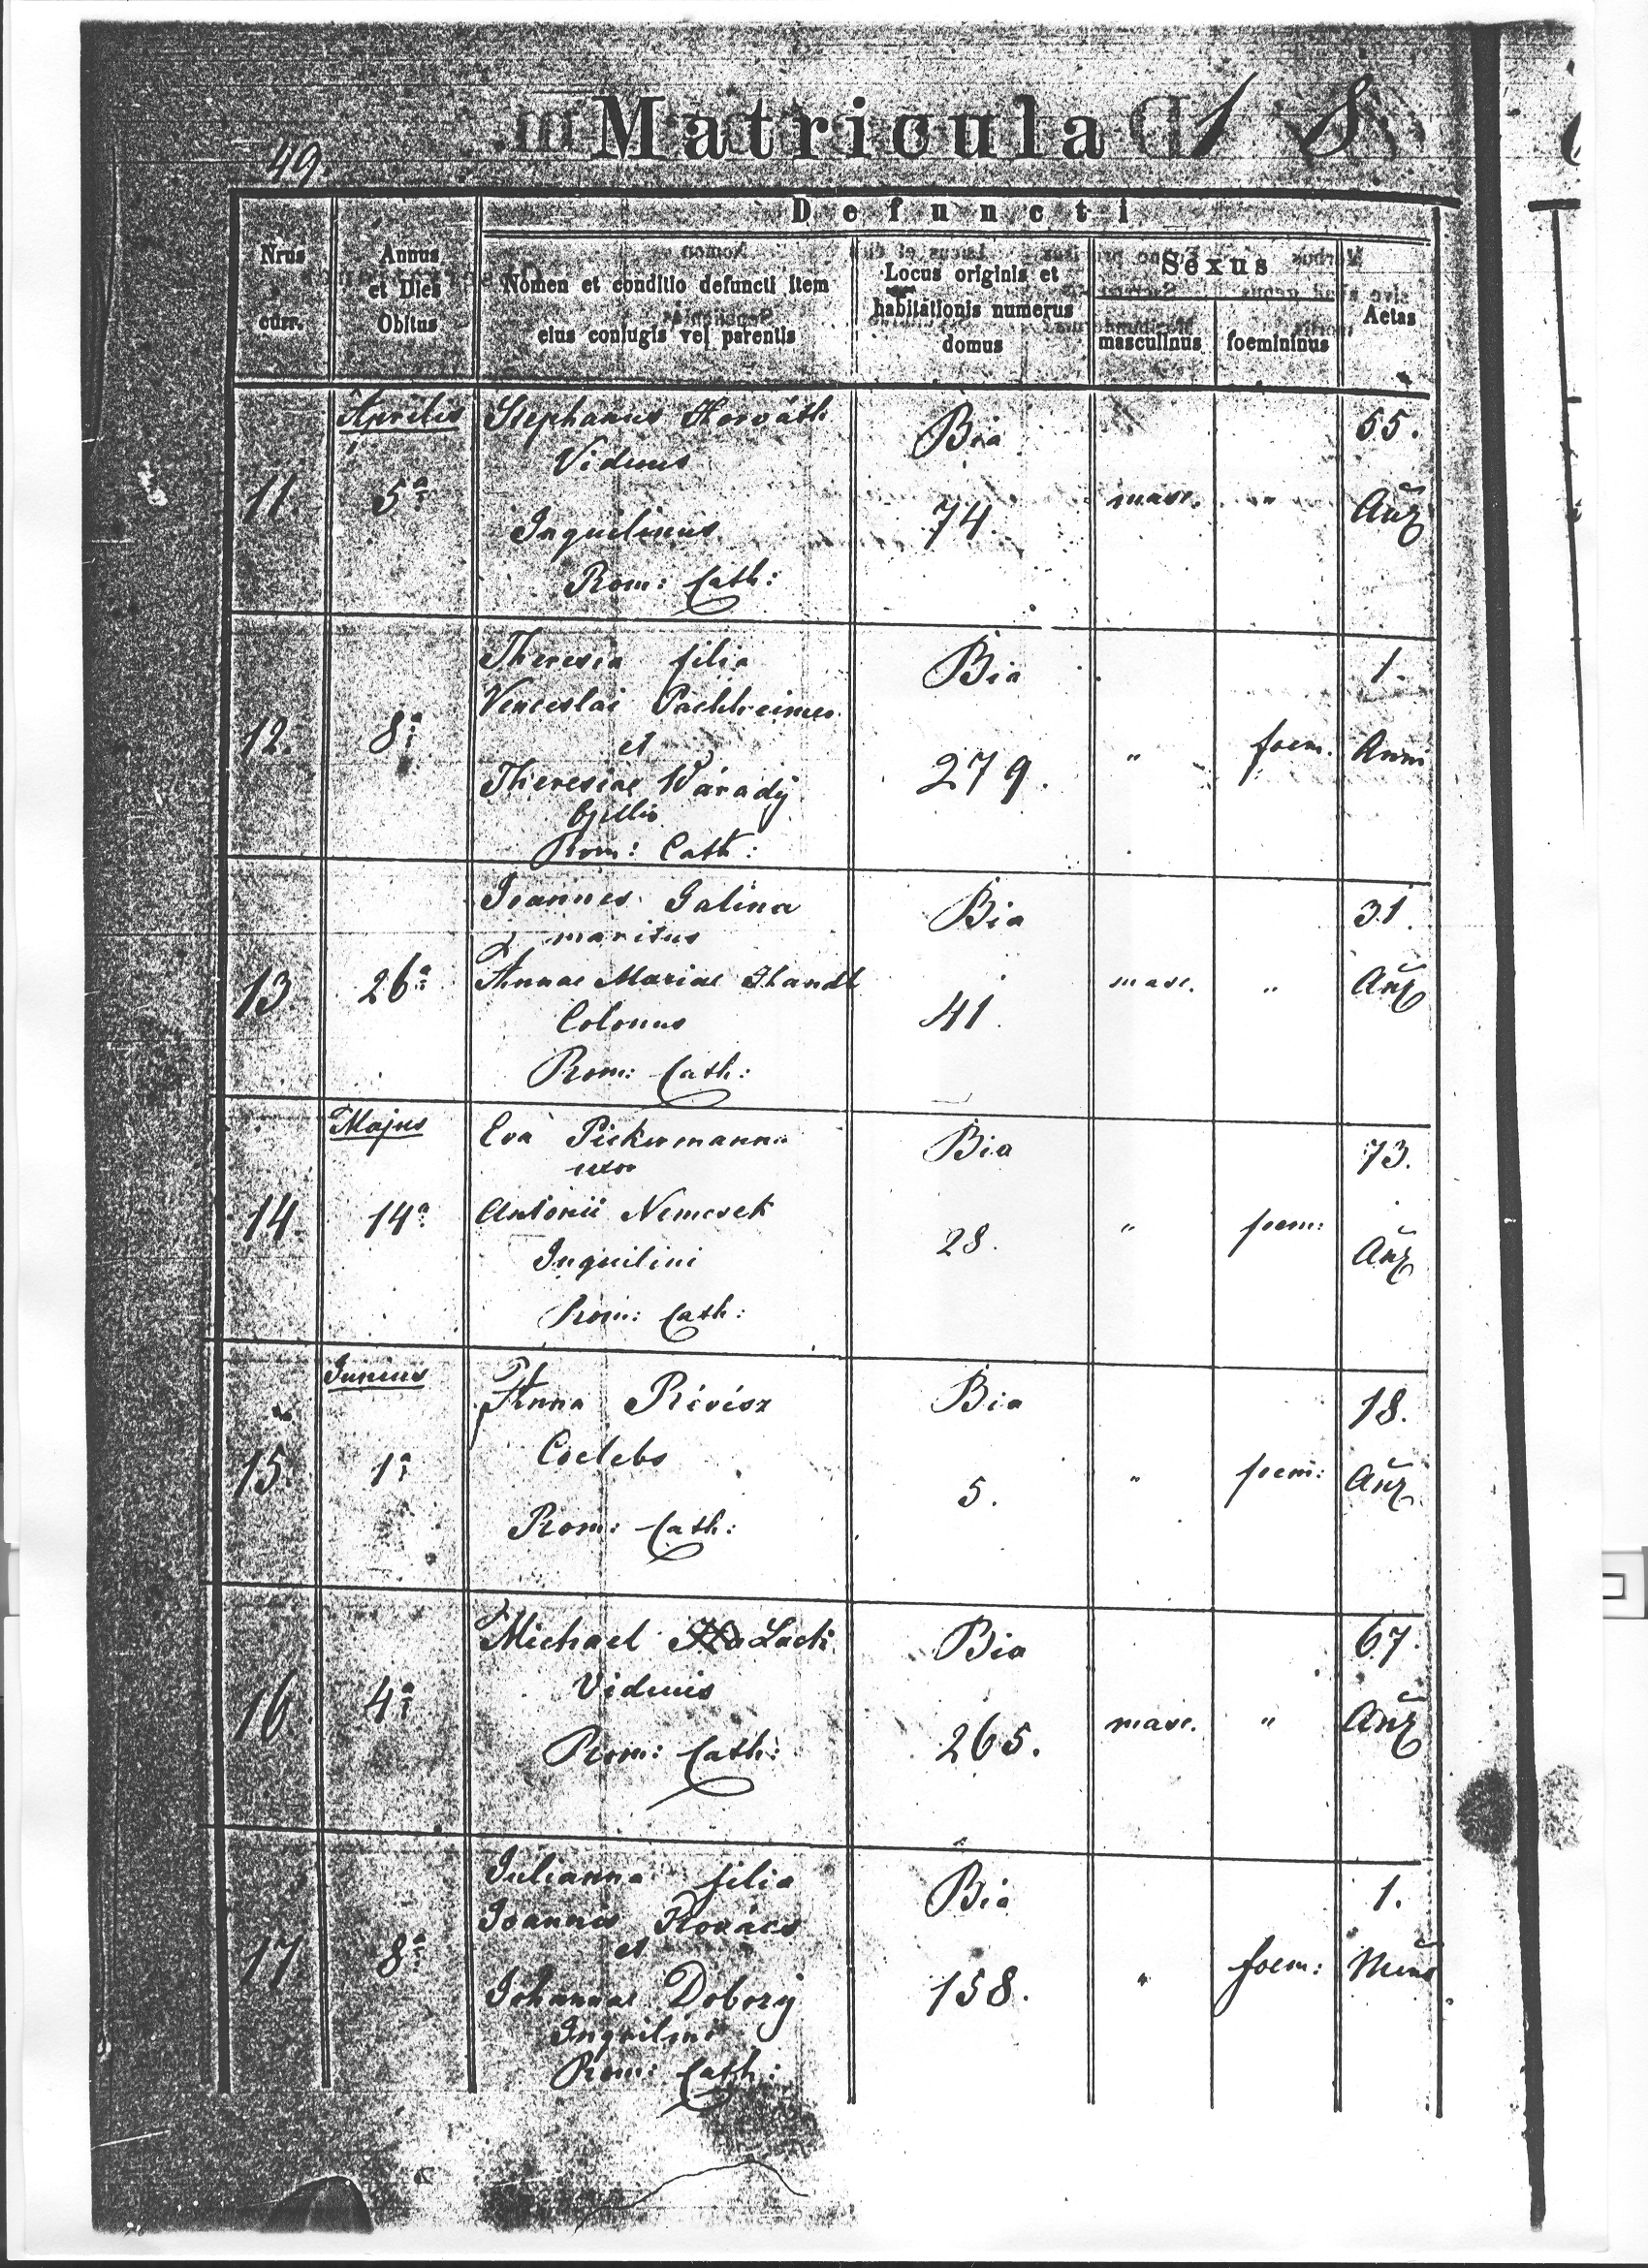 49.
Matricula 1 8
Defuncti
Nrus
curr.
Annus
et Dies
Obitus
Nomen et conditio defuncti item
eius coniugis vel parentis
Locus originis et
habitationis numerus
domus
Sexus
masculinus
foemininus
Aetas
Aprilis
11.
5ª
Stephanus Horváth
Viduus
Inquilinus
Rom: Cath:
Bia
74.
masc.
"
55.
Añ
12.
8ª
Theresia filia
Venceslai
et
Theresiae Várady
Rom: Cath:
Bia
279.
"
foem.
1.
Anni
13.
26ª
Joannes Galina
maritus
Annae Mariae
Colonus
Rom: Cath:
Bia
41.
masc.
"
31.
Añ
Majus
14.
14ª
Eva
uxor
Antonii Nemcsek
Inquilini
Rom: Cath:
Bia
28.
"
foem:
73.
Añ
Junius
15.
1ª
Anna Révész
Coelebs
Rom: Cath:
Bia
5.
"
foem:
18.
Añ
16.
4ª
Michael Lacki
Viduus
Rom: Cath:
Bia
265.
masc.
"
67.
Añ
17
8ª
Julianna filia
Joannis Kovács
et
Johannae Dobozy
Inquilini
Rom: Cath:
Bia
158.
"
foem:
1.
Mens